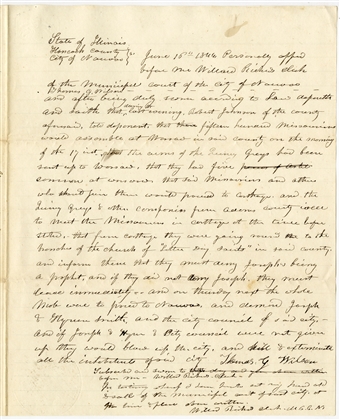 State of Illinois
Hancock County
City of Nauvoo
June 16th 1844 Personally appd
before me Willard Richards Clerk
of the Municipal Court of the City of Nauvoo
Thomas G. Wilson
and after being duly sworn according to Law deposeth
and saith that evening, Robert Johnson of the county
aforesaid, told deponent that fifteen hundred Missourians
would assemble at Warsaw in said county on the morning
of the 17 inst. the arms of the Quincy Greys had been
sent up to Warsaw. that they had five
cannon at Warsaw. that said Missourians and others
who then would proceed to Carthage. and the
Quincy Greys & other companies from Adams County were
to meet the Missourians in Carthage at the time before
stated. that from Carthage they were going round to the
branches of the church of Latter day Saints in said county.
and inform them that they must deny Joseph's being
a prophet, and if they did not deny Joseph, they must
leave immediately. and on Thursday next the whole
Mob were to proceed to Nauvoo, and demand Joseph
& Hyrum Smith, and the city council of said city.
and if Joseph & Hyrum & City council were not given
up they would blow up the city, and kill & exterminate
all the inhabitants of said city Thomas G. Wilson
Subscribed and sworn to
before me Willard Richards
In testimony whereof I have hereunto set my hand and
seal of the Municipal Court of said city, at
the time & place above written
Willard Richards Clerk M.C.C.N.